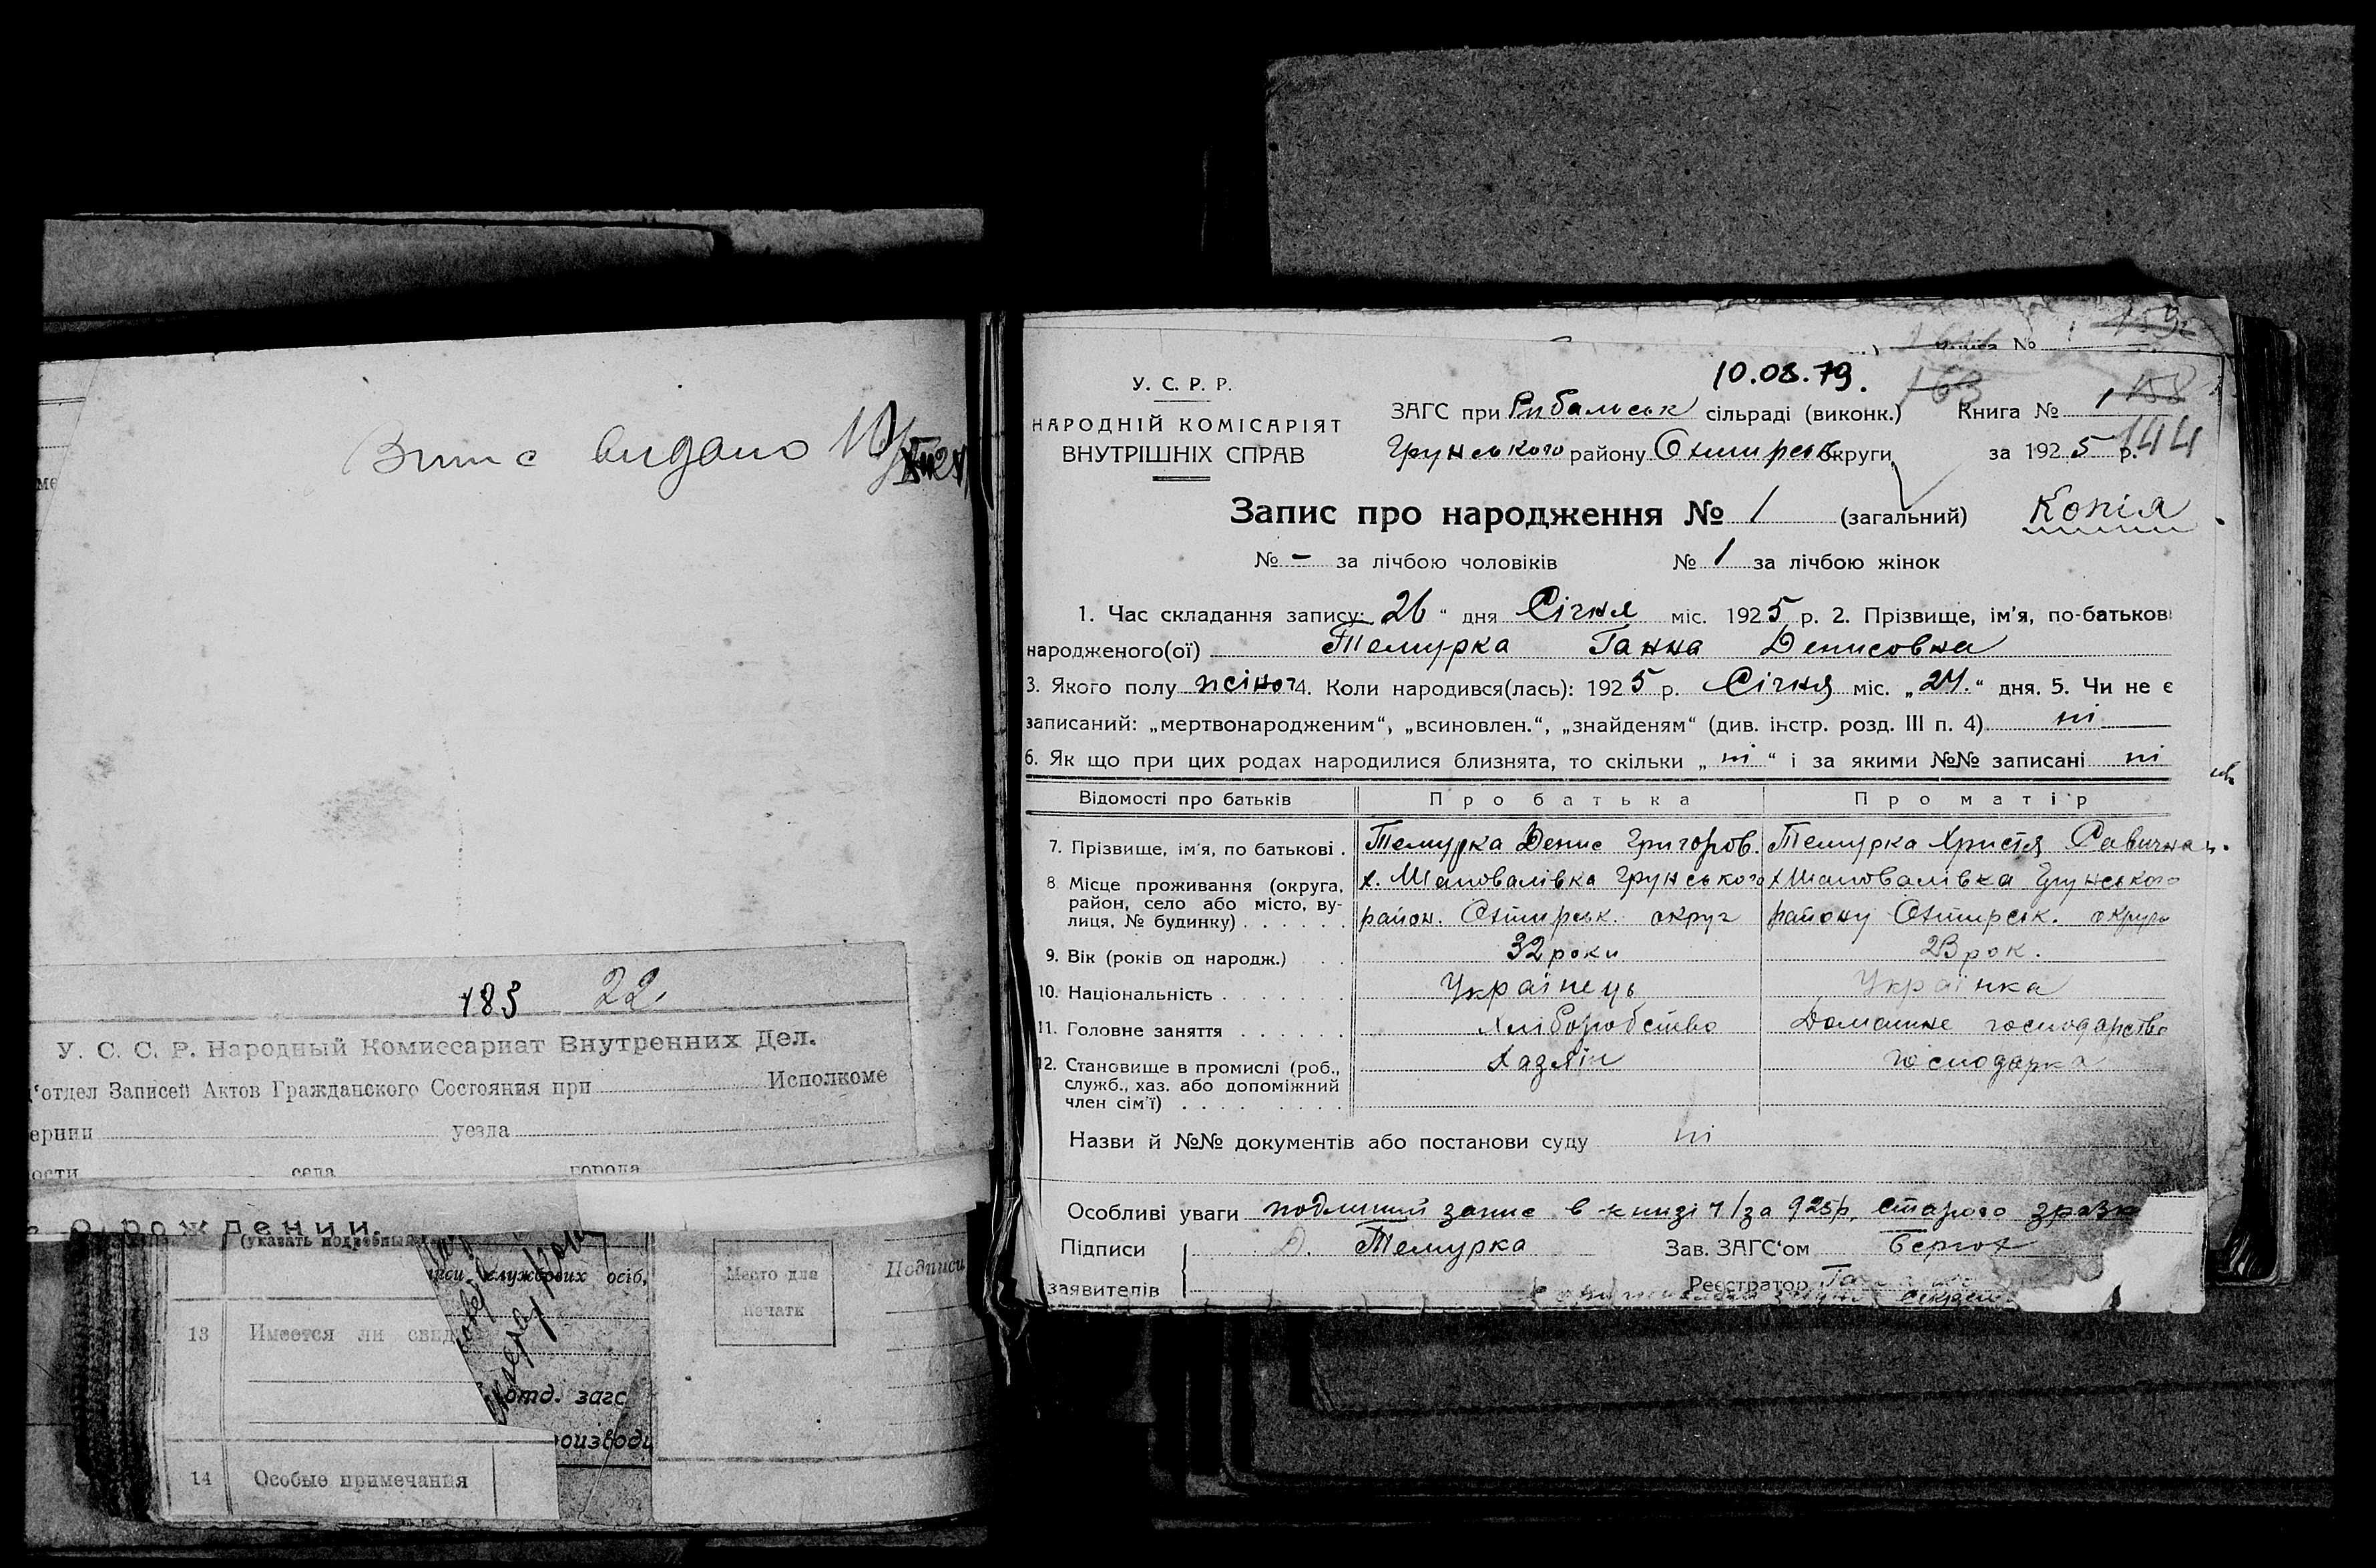 Випис видано 10/XII 24
183 22
У. С. С. Р. Народный Комиссариат Внутренних Дел.
отдел Записей Актов Гражданского Состояния при Исполкоме
ернии уезда
ости села города
о рождении.
(указать подробный
службових осіб,
Место для
печати
Подписи
13 Имеется ли свид
отд. загс
14 Особые примечания
Книга №
10.08.79.
У. С. Р. Р.
НАРОДНІЙ КОМІСАРІЯТ
ВНУТРІШНІХ СПРАВ
ЗАГС при Рибальськ сільраді (виконк.) 163 Книга № 1 158
Грунського району Охтирськ округи за 1925 р. 144
Запис про народження № 1 (загальний) Копія
№ – за лічбою чоловіків № 1 за лічбою жінок
1. Час складання запису: 26 “ дня Січня міс. 1925 р. 2. Прізвище, ім'я, по-батькові
народженого(ої) Темурка Ганна Денисовна
3. Якого полу жіноч 4. Коли народився(лась): 1925 р. Січня міс. „24.“ дня. 5. Чи не є
записаний: „мертвонародженим“, „всиновлен.“, „знайденям“ (див. інстр. розд. III п. 4) ні
6. Як що при цих родах народилися близнята, то скільки „ ні “ і за якими №№ записані ні
Відомості про батьків Про батька Про матір
7. Прізвище, ім'я, по батькові . Темурка Денис Григоров. Темурка Христя Савична
8 Місце проживання (округа, х. Шаповалівка Грунського х Шаповалівка Грунського
район, село або місто, ву- район. Охтирськ. округ району Охтирськ. округи
лиця, № будинку) . . . . . .
9. Вік (років од народж.) . . 32 роки 23 рок.
10. Національність . . . . . . . Українець Українка
11. Головне заняття . . . . . . Хліборобство Домашнє господарство
12. Становище в промислі (роб., Хазяїн господарка
служб., хаз. або допоміжний
член сім'ї) . . . . . . . .
Назви й №№ документів або постанови суду ні
Особливі уваги подлиний запис в книзі 1/за 925р. старого зразк
Підписи Д. Темурка Зав. ЗАГС'ом
заявителів Реєстратор